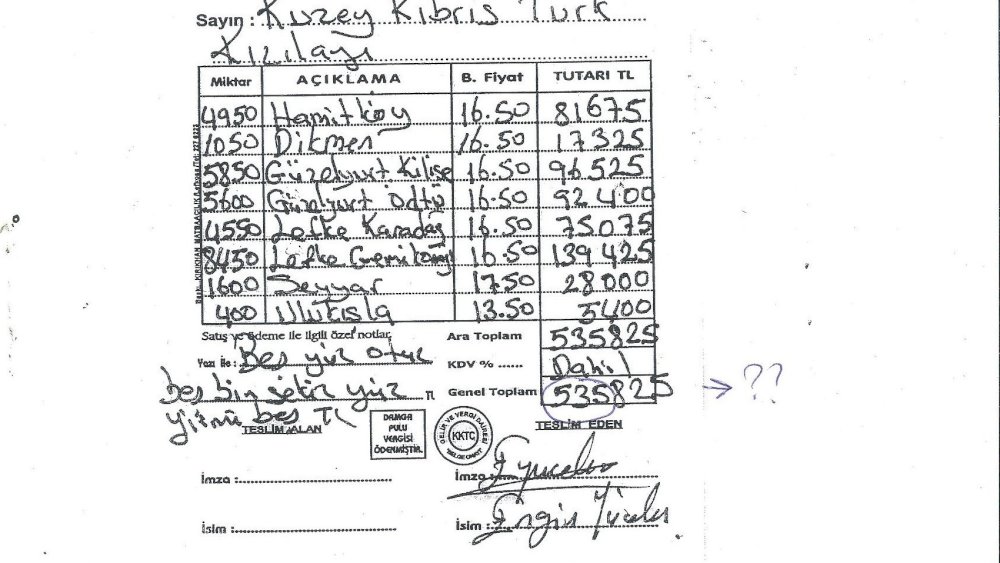 Sayın : Kuzey Kıbrıs Türk
Kızılayı
Miktar AÇIKLAMA B. Fiyat TUTARI TL
4950 Hamitköy 16.50 81675
1050 Dikmen 16.50 17325
5850 Güzelyurt Kilise 16.50 96.525
5600 Güzelyurt Odtü 16.50 92400
4550 Lefke Karadağ 16.50 75075
8450 Lefke Gemikonağı 16.50 139425
1600 Seyyar 17.50 28000
400 Ulukışla 13.50 5400
Satış ve ödeme ile ilgili özel notlar. Ara Toplam 535825
Yazı ile : Beş yüz otuz KDV % ...... Dahil
beş bin sekiz yüz TL Genel Toplam 535825 → ??
yirmi beş TL
TESLİM ALAN
DAMGA
PULU
VERGİSİ
ÖDENMİŞTİR.
GELİR VE VERGİ DAİRESİ
KKTC
TESLİM EDEN
İmza : İmza :
İsim : İsim : Engin Yücelen